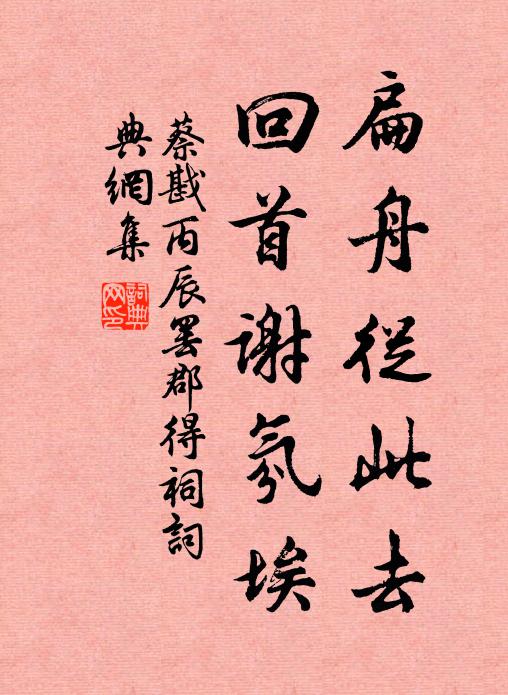 扁舟從此去
回首謝氛埃
蔡戡丙辰罢郡得祠詞
典網集
詞典网印